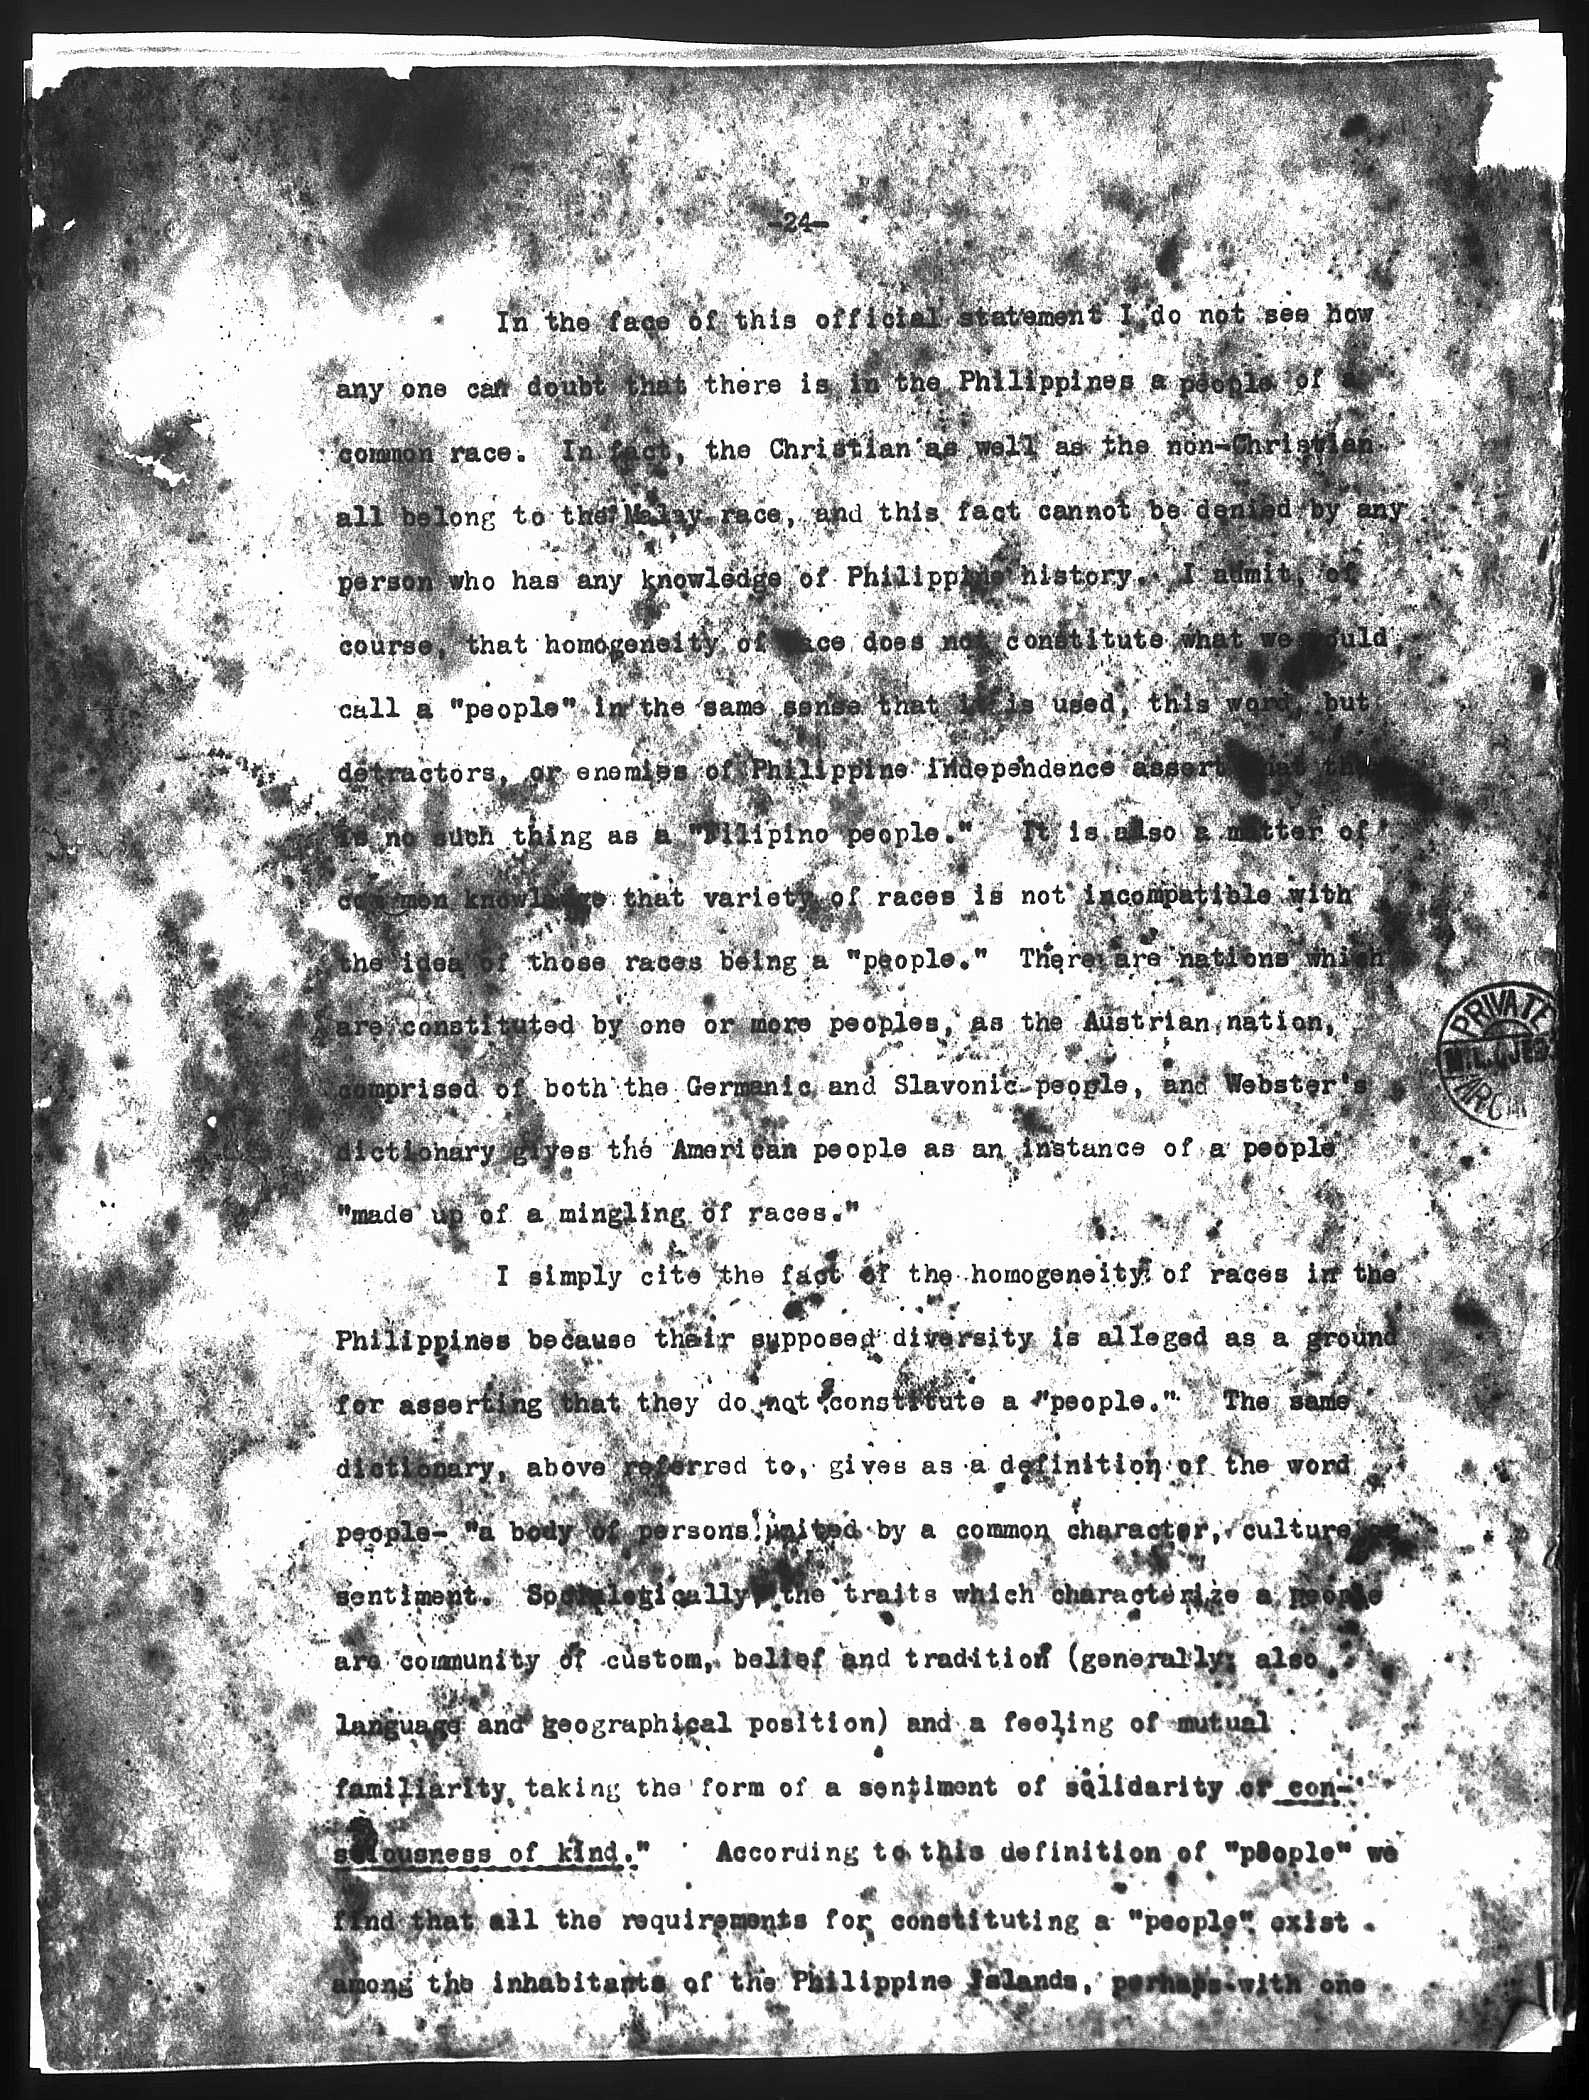 -24-
In the face of this official statement I do not see how
any one can doubt that there is in the Philippines a people of a
common race. In fact, the Christian as well as the non-Christian
all belong to the Malay race, and this fact cannot be denied by any
person who has any knowledge of Philippine history. I admit, of
course, that homogeneity of race does not constitute what we would
call a "people" in the same sense that it is used, this word, but
detractors, or enemies of Philippine independence assert that
is no such thing as a "Filipino people." It is also a matter of
common knowledge that variety of races is not incompatible with
the idea of those races being a "people." There are nations which
are constituted by one or more peoples, as the Austrian nation,
comprised of both the Germanic and Slavonic people, and Webster's
dictionary gives the American people as an instance of a people
"made up of a mingling of races."
I simply cite the fact of the homogeneity of races in the
Philippines because their supposed diversity is alleged as a ground
for asserting that they do not constitute a "people." The same
dictionary, above referred to, gives as a definition of the word
people- "a body of persons united by a common character, culture
sentiment. Sociologically, the traits which characterize a people
are community of custom, belief and tradition (generally also
language and geographical position) and a feeling of mutual
familiarity taking the form of a sentiment of solidarity or con-
sciousness of kind." According to this definition of "people" we
find that all the requirements for constituting a "people" exist
among the inhabitants of the Philippine Islands, perhaps with one
PRIVATE